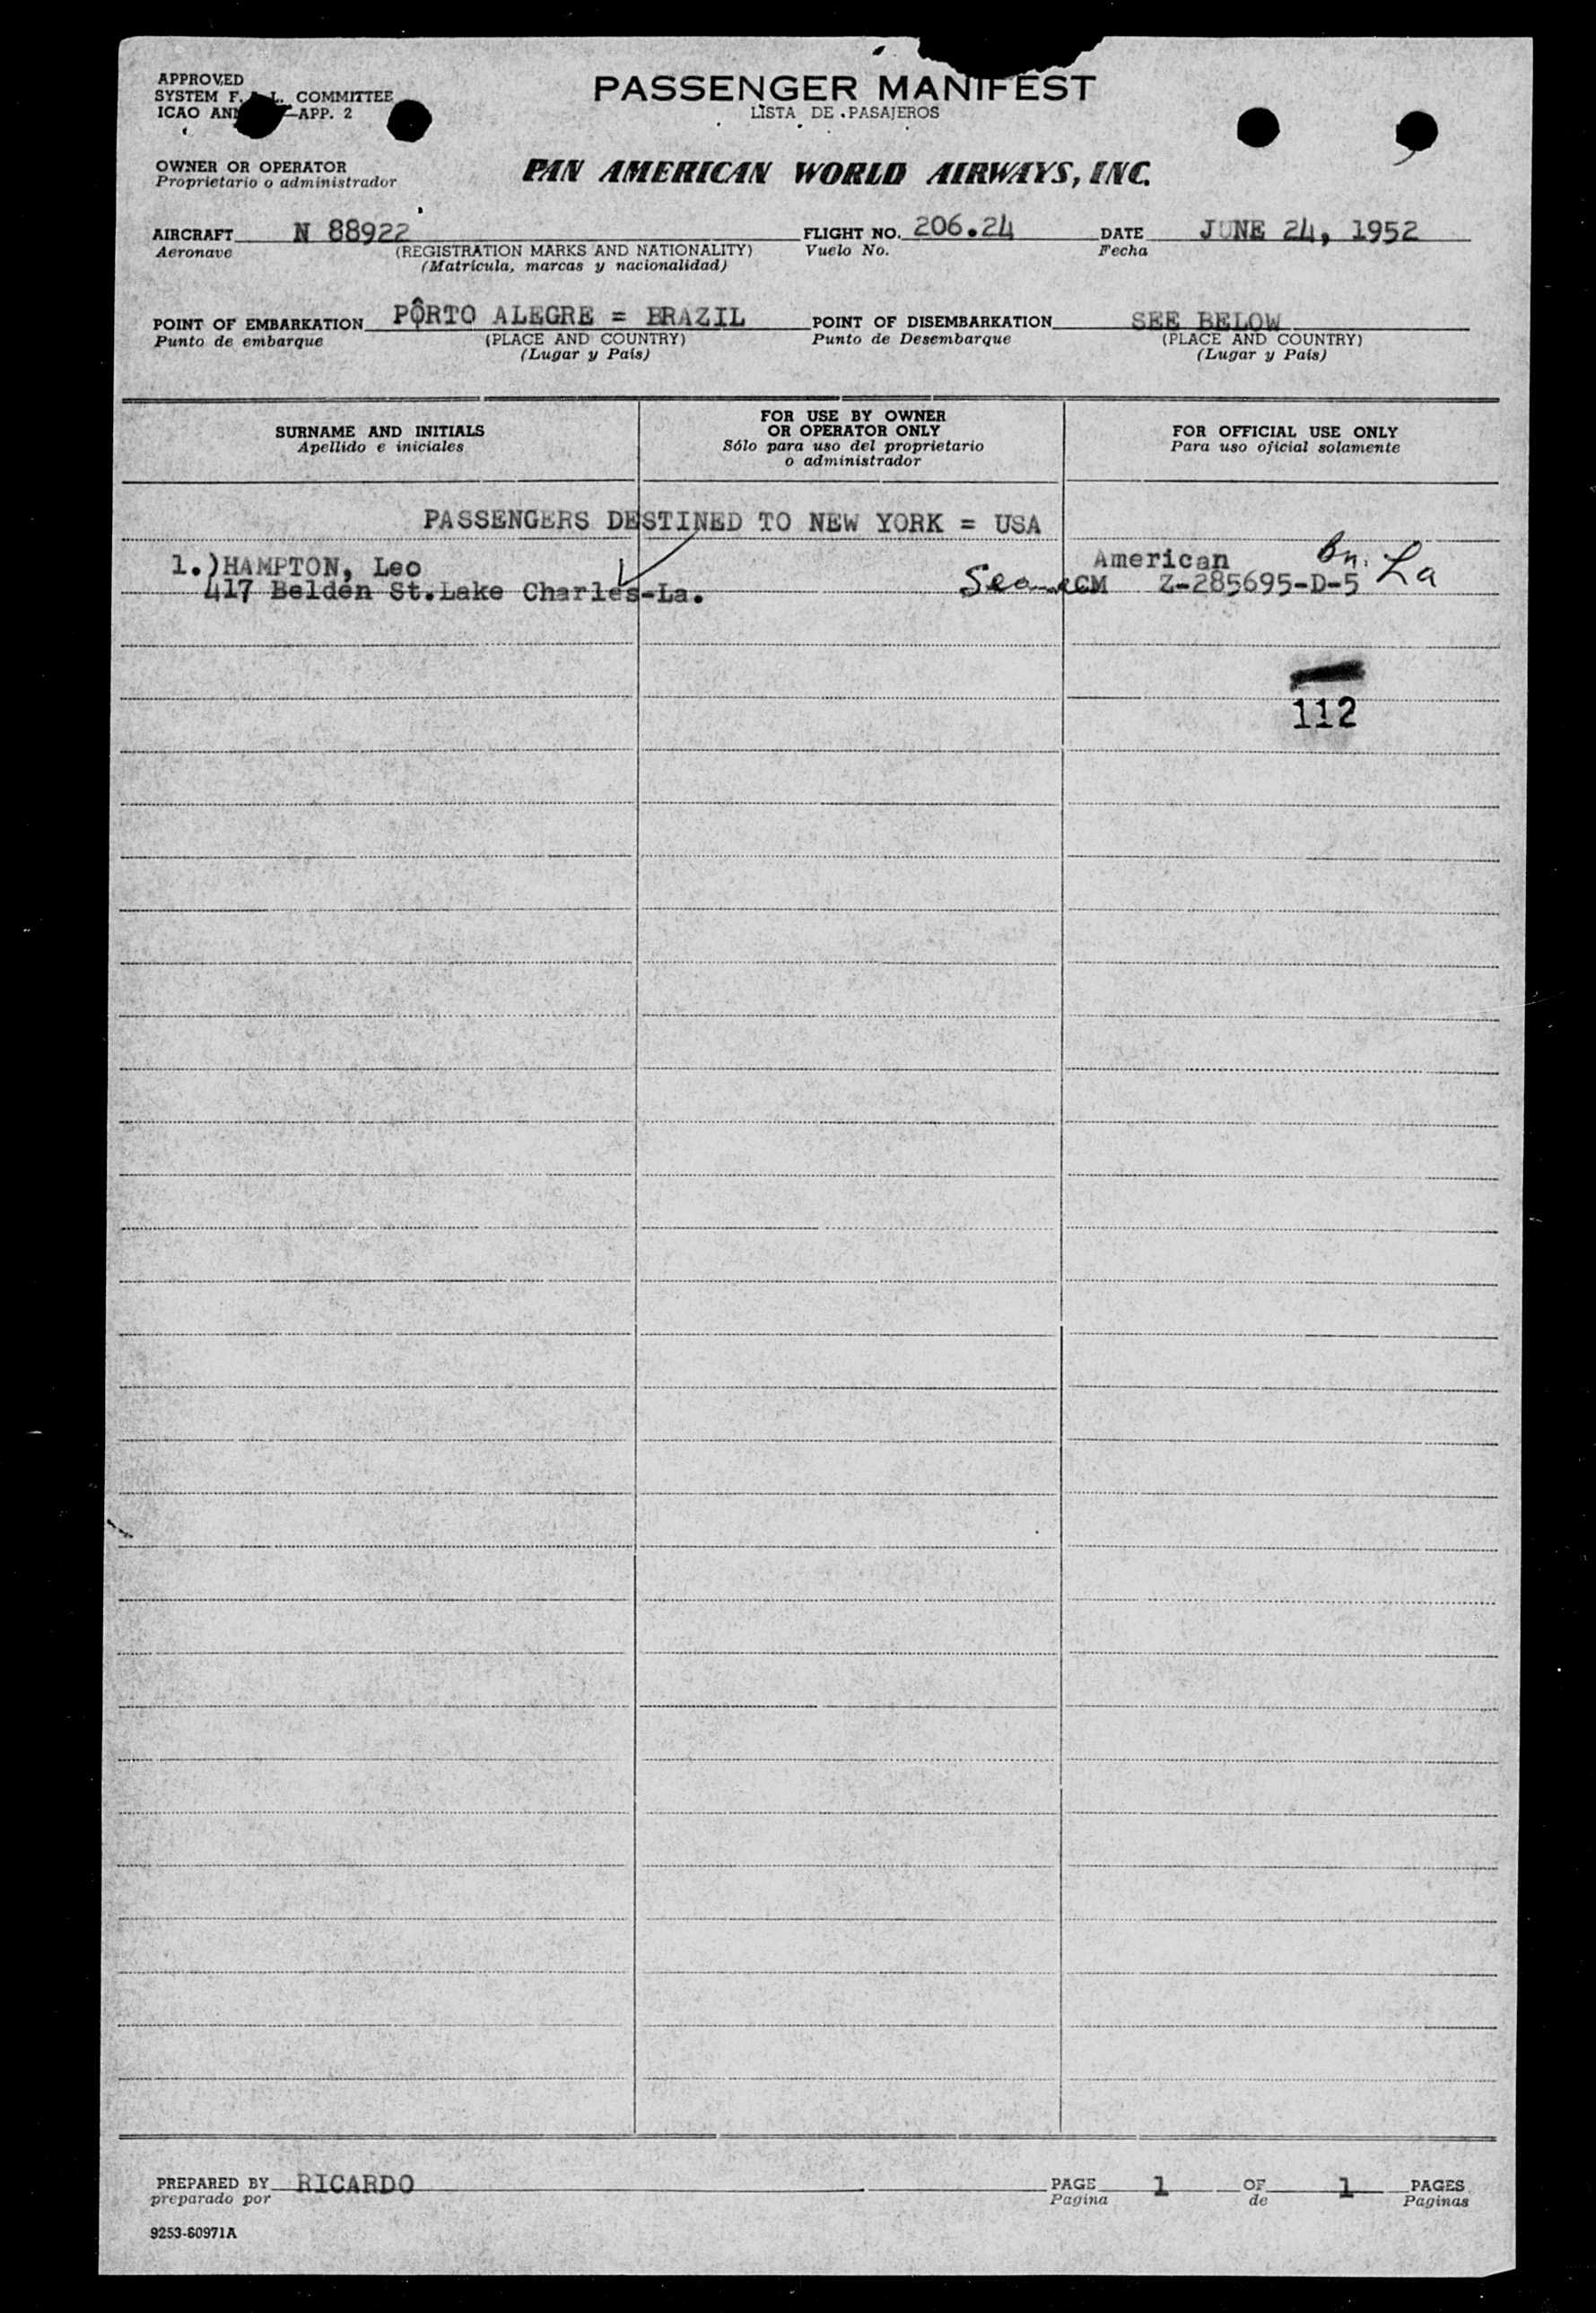 APPROVED
SYSTEM F. L. COMMITTEE
ICAO APP. 2
PASSENGER MANIFEST
LISTA DE PASAJEROS
OWNER OR OPERATOR
Proprietario o administrador
PAN AMERICAN WORLD AIRWAYS, INC.
AIRCRAFT N 88922 FLIGHT NO. 206.24 DATE JUNE 24, 1952
Aeronave (REGISTRATION MARKS AND NATIONALITY) Vuelo No. Fecha
(Matrícula, marcas y nacionalidad)
POINT OF EMBARKATION PÔRTO ALEGRE = BRAZIL POINT OF DISEMBARKATION SEE BELOW
Punto de embarque (PLACE AND COUNTRY) Punto de Desembarque (PLACE AND COUNTRY)
(Lugar y País) (Lugar y País)
SURNAME AND INITIALS
Apellido e iniciales
FOR USE BY OWNER
OR OPERATOR ONLY
Sólo para uso del proprietario
o administrador
FOR OFFICIAL USE ONLY
Para uso oficial solamente
PASSENGERS DESTINED TO NEW YORK = USA
1.)HAMPTON, Leo American Bn. La
417 Belden St.Lake Charles-La. Z-285695-D-5
112
PREPARED BY RICARDO PAGE 1 OF 1 PAGES
preparado por Pagina de Paginas
9253-60971A